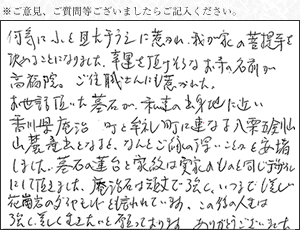 ※ご意見、ご質問等ございましたらご記入ください。
何気に小と見た チラシに惹かれ、我が家の菩提寺を
決めることになりました。幸運を頂けそうなお寺の名前が
高福院。ご住職さんにも惹かれた。
お世話頂いた墓石が、私達の出身地に近い
香川県庵治町と牟礼町に連なる八栗五剣山
山麓産出となると、なんとご縁の深いことかと感謝
しました。墓石の蓮台と家紋は実家のものと同じデザイン
にして頂きました。庵治石は頑丈で強く、いつまでも美しい
花崗岩のダイヤモンドと言われています。この後の人生は
強く美しく生きたいと願っております。ありがとうございました